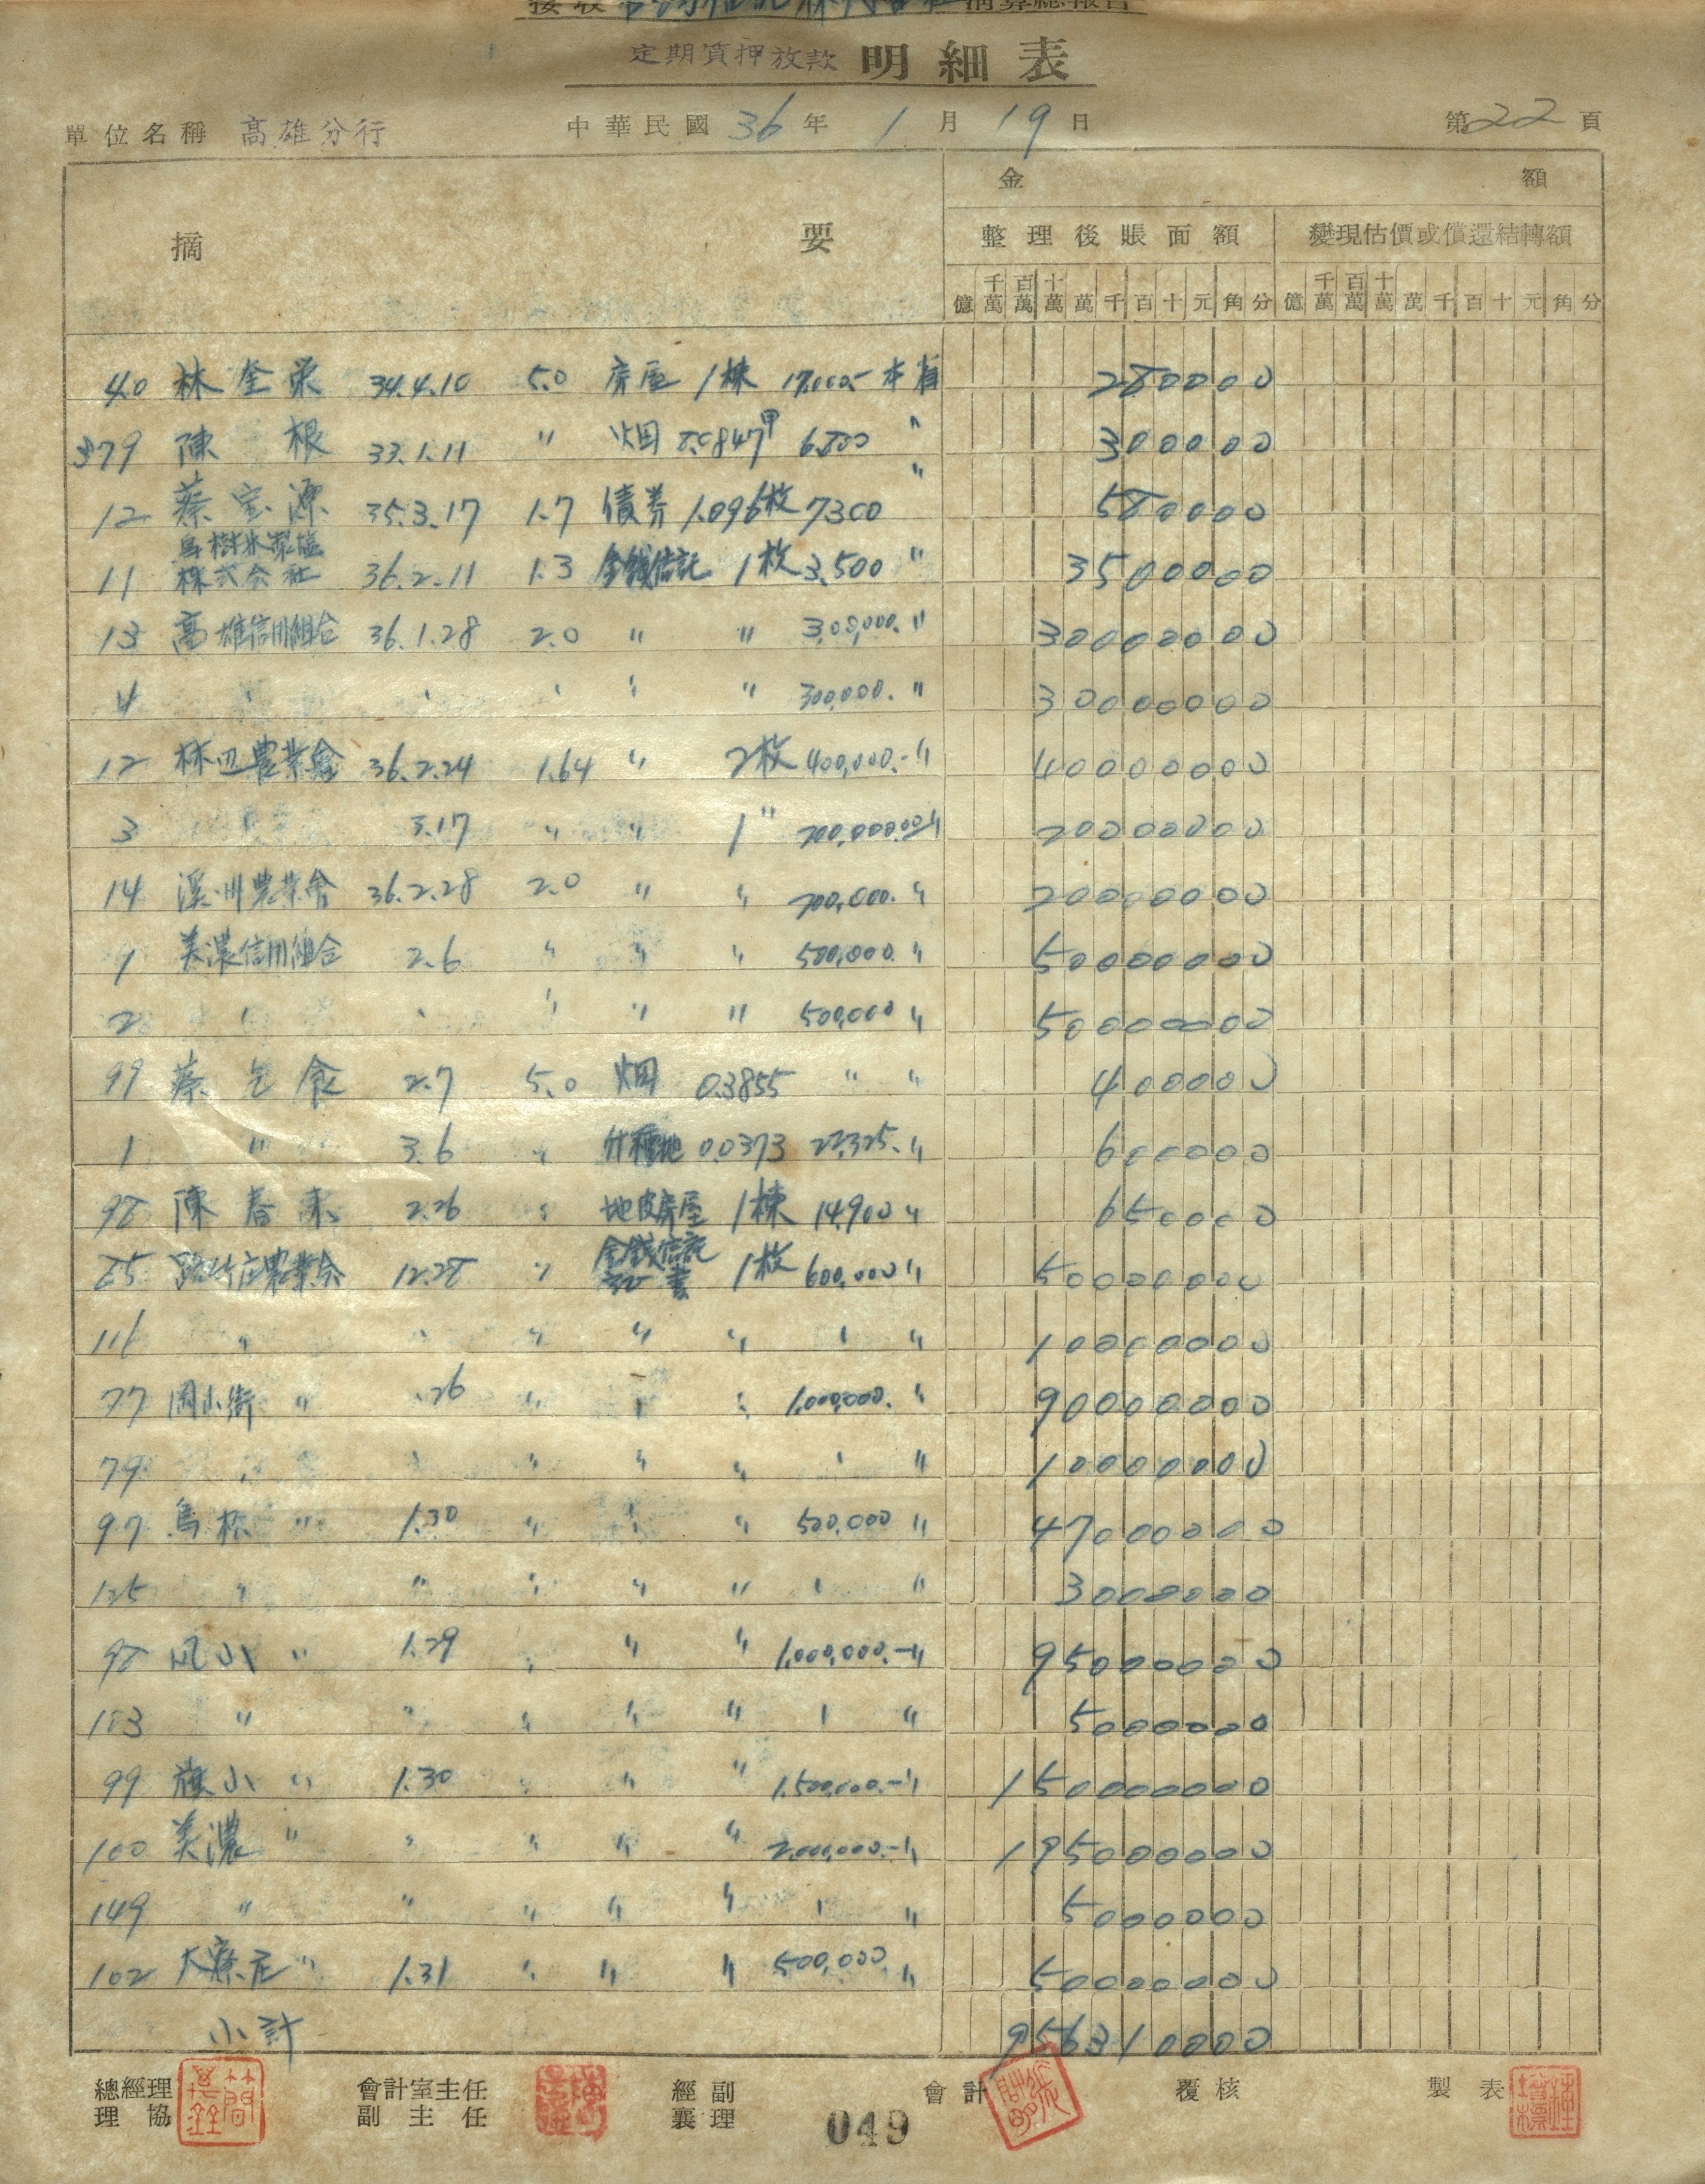 定期質押放款 明細表
單位名稱 高雄分行 中華民國 36 年 1 月 19 日 第 22 頁
金 額
摘 要 整理後賬面額 變現估價或償還結轉額
億 千萬 百萬 十萬 萬 千 百 十 元 角 分 億 千萬 百萬 十萬 萬 千 百 十 元 角 分
40 林 金 栄 34.4.10 5.0 房屋 1棟 17,000.- 本省 280000
379 陳 根 33.1.11 〃 畑 8.0847甲 6,800 〃 300000
12 蔡 宝 源 35.3.17 1.7 債券 1.096枚 7300 〃 580000
11 烏樹林製塩株式会社 36.2.11 1.3 金錢信託 1枚 3,500 〃 3500000
13 高雄信用組合 36.1.28 2.0 〃 〃 300,000. 〃 30000000
4 〃 〃 〃 〃 〃 300,000. 〃 30000000
12 林辺農業會 36.2.24 1.64 〃 2枚 400,000.- 〃 40000000
3 3.17 〃 〃 1 〃 200,000.00 〃 20000000
14 溪州農業會 36.2.28 2.0 〃 〃 200,000. 〃 20000000
1 美濃信用組合 2.6 〃 〃 〃 500,000. 〃 50000000
2 〃 〃 〃 〃 〃 500,000 〃 50000000
99 蔡 食 2.7 5.0 畑 0.3855 〃 〃 400000
1 〃 3.6 〃 0.0373 22,325. 〃 600000
98 陳 春 来 2.26 〃 地皮房屋 1棟 14,900 〃 650000
85 路竹庄農業会 12.28 〃 金錢信託証書 1枚 600,000 〃 50000000
116 〃 〃 〃 〃 〃 〃 〃 10000000
77 岡山街 〃 .26 〃 〃 〃 1,000,000. 〃 90000000
79 〃 〃 〃 〃 〃 〃 〃 10000000
97 鳥松 〃 1.30 〃 〃 〃 500,000 〃 47000000
125 〃 〃 〃 〃 〃 〃 〃 3000000
98 凤山 〃 1.29 〃 〃 〃 1,000,000.- 〃 95000000
103 〃 〃 〃 〃 〃 〃 〃 5000000
99 旗山 〃 1.30 〃 〃 〃 1,500,000.- 〃 150000000
100 美濃 〃 〃 〃 〃 〃 2,000,000.- 〃 195000000
149 〃 〃 〃 〃 〃 〃 〃 5000000
102 大寮庄 〃 1.31 〃 〃 〃 500,000. 〃 50000000
小計 956310000
總經理 會計室主任 經副 會計 覆核 製表
理協 副主任 襄理
049